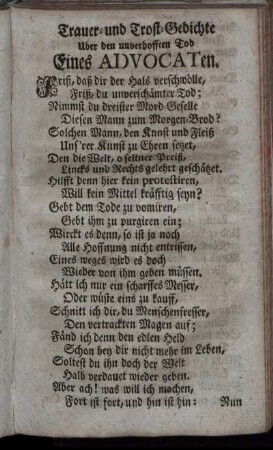 Trauer- und Trost-Gedichte
Uber den unverhofften Tod
Eines ADVOCATen.
Friß, daß dir der Hals verschwölle,
Friß, du unverschämter Tod;
Nimmst du dreister Mord-Geselle
Diesen Mann zum Morgen-Brod?
Solchen Mann, den Kunst und Fleiß
Uns'rer Kunst zu Ehren setzet,
Den die Welt, o seltner Preiß,
Lincks und Rechts gelehrt geschätzet.
Hilfft denn hier kein protestiren,
Will kein Mittel kräfftig seyn?
Gebt dem Tode zu vomiren,
Gebt ihm zu purgiren ein;
Wirckt es denn, so ist ja noch
Alle Hoffnung nicht entrissen,
Eines weges wird es doch
Wieder von ihm geben müssen.
Hätt ich nur ein scharffes Messer,
Oder wüste eins zu kauff,
Schnitt ich dir, du Menschenfresser,
Den vertrackten Magen auf;
Fänd ich denn den edlen Held
Schon bey dir nicht mehr im Leben,
Soltest du ihn doch der Welt
Halb verdauet wieder geben.
Aber ach! was will ich machen,
Fort ist fort, und hin ist hin:
Nun